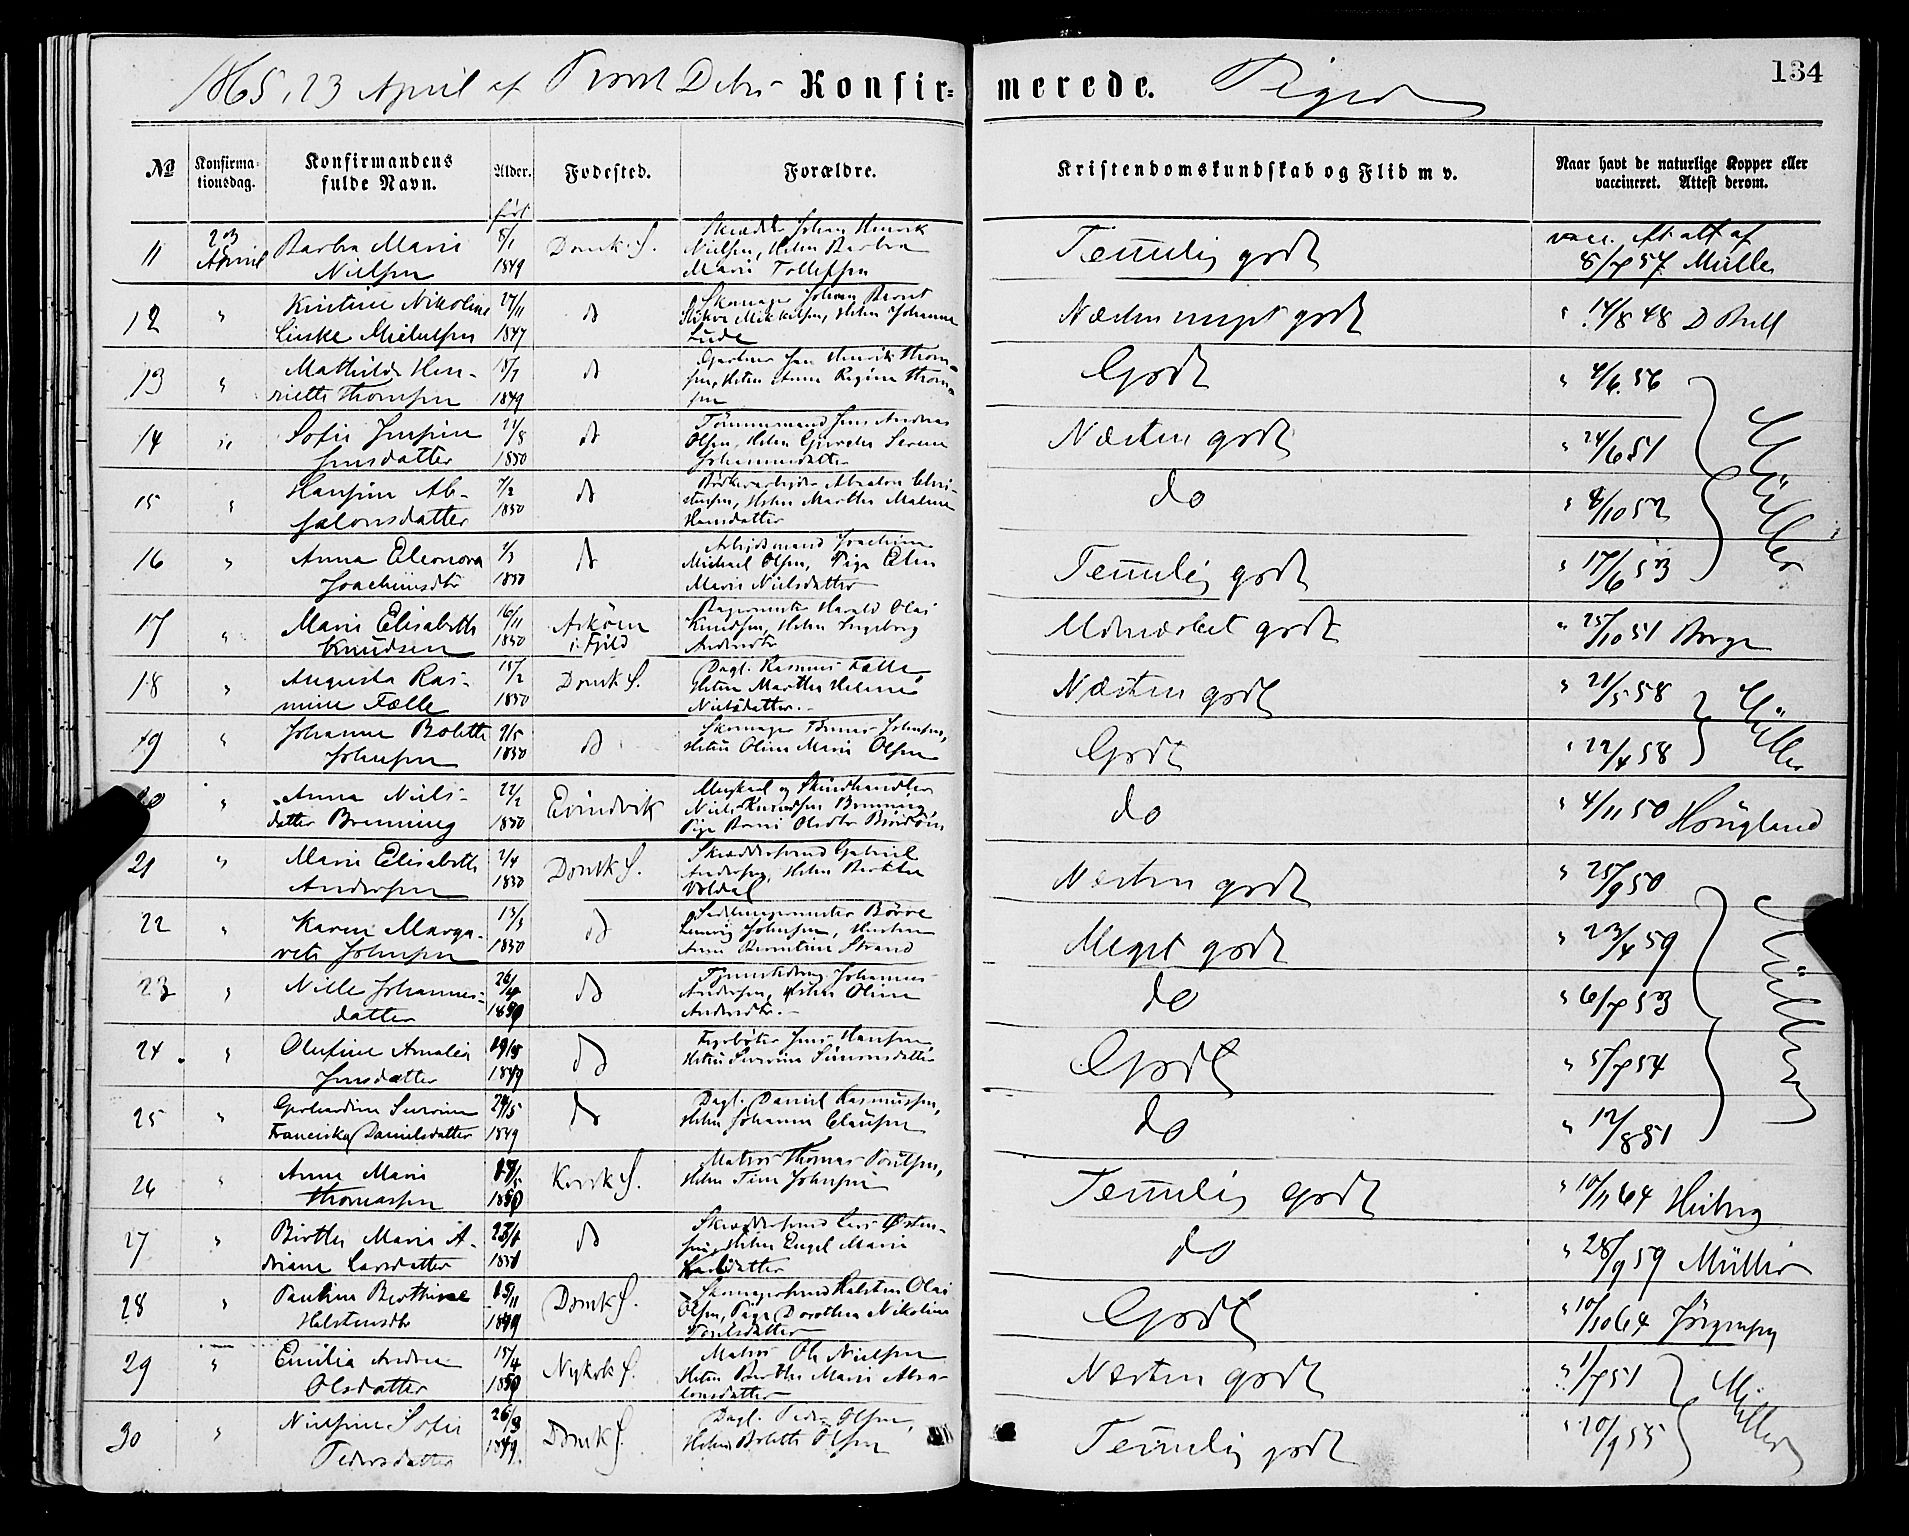 1865, 23 April af Provst
Konfirmerede. Piger
134
№ Konfirmationsdag. Konfirmandens fulde Navn. Alder. Fødested. Forældre. Kristendomskundskab og Flid m v. Naar havt de naturlige Kopper eller vaccineret. Attest derom.
født
11 23 April Barbra Marie Nielsen 8/1 1849 Domk S. Skrædder Johan Henrik Nielsen, Helen Barbra Marie Tollefsen Temelig godt vacc. att af 8/7 57 Müller
12 " Kristine Nikoline 27/11 1847 do Skomager Johan Berent Mikkelsen, Johanna Næsten meget godt " 14/8 48 D Bull
13 " Mathilde Henriette Thomsen 1849 do Jan Henrik Thomsen, Anne Regine Thomsen Godt " 4/6 56
14 " Sofie Jensine Jensdatter 21/8 1850 do Tømmermand Jens Andreas Olsen, Serine Johannesdatter Næsten godt " 24/6 51
15 " Hansine Absalonsdatter 7/2 1850 do Absalon Christensen, Martha Malene Hansdatter do " 8/10 52
16 " Anna Eleonora Joachimsdtr 2/3 1850 do Arbeidsmand Joachim Michael Olsen, Pige Elen Marie Nielsdatter Temelig godt " 17/6 53
Müller
17 " Marie Elisabeth Knudsen 16/11 1850 Askøen i Fjeld Bagermester Harald Olai Knudsen, Ingeborg Andersdtr Udmærket godt " 25/10 51 Borge
18 " Augusta Rasmine Fælle 15/2 1850 Domk S. Dagl. Rasmus Fælle, Martha Helene Nielsdatter. Næsten godt " 21/5 58
19 " Johanne Bolette Johnsen 9/5 1850 do Skomager Johnsen, Oline Marie Olsen Godt " 22/4 58
Müller
20 " Anna Nielsdatter Brenning 22/2 1850 Evindvik og Skindhandler Niels Knudsen Brenning, Pige Olsdtr do " 4/11 50 Høugland
21 " Marie Elisabeth Andersen 2/4 1850 Domk S. Skræddersvend Gabriel Andersen, Voldal Næsten godt " 25/9 50
22 " Karen Margarete Johnsen 13/3 1850 do Børre Johnsen, Hustru Anne Berentine Strand Meget godt " 23/4 59
23 " Nille Johannesdatter 26/4 1850 do Johannes Andersen, Oline Andersdtr. do " 6/7 53
24 " Olufine Amalia Jensdatter 1849 do Fyrbøter Jens Hansen, Severine Simonsdatter Godt " 5/7 54
25 " Gerhardine Severine Franciska Danielsdatter 24/5 1849 do Dagl. Daniel Rasmussen, Johanna Clausen do " 12/8 51
Müller
26 " Anne Marie Thomassen 1850 Korsk S. Matros Thomas Poulsen, Johnsen Temelig godt " 10/11 64 Heiberg
27 " Birthe Marie Adriane Larsdatter 1850 do Skræddersvend Lars Østensen, Engel Marie do " 28/9 59 Müller
28 " Pauline Berthine Halstensdtr 15/11 1849 Domk S. Skomagersvend Halsten Olai Olsen, Pige Dorothea Nikoline Poulsdatter Godt " 10/10 64 Jørgensen
29 " Emilia Andrea Olsdatter 15/4 1850 Nykrk S. Matros Ole Nielsen Berthe Marie Absalonsdatter Næsten godt " 1/7 51
30 " Nielsine Sofie Pedersdatter 26/3 1849. Domk S. Dagl. Peder Olsen, Bolette Olsen Temelig godt " 20/9 55
Müller